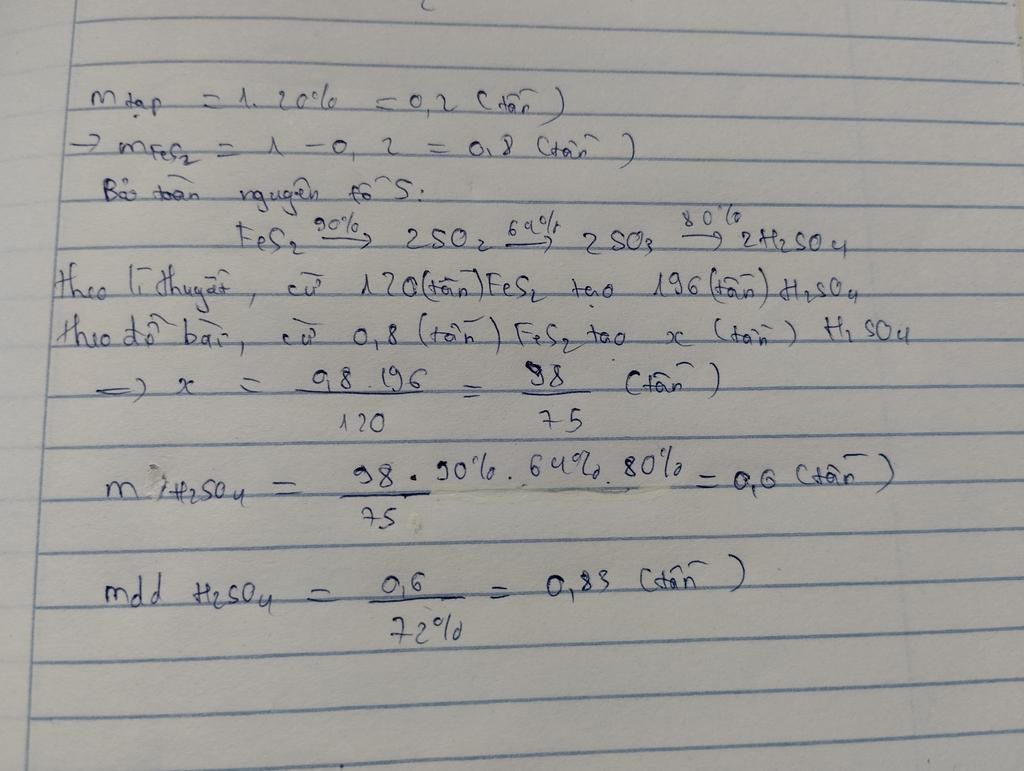 m tạp = 1. 20% = 0,2 (tấn)
→ mFeS2 = 1 - 0,2 = 0,8 (tấn)
Bảo toàn nguyên tố S:
FeS2 90%→ 2SO2 64%→ 2SO3 80%→ 2H2SO4
theo lí thuyết, cứ 120(tấn)FeS2 tạo 196(tấn) H2SO4
theo đề bài, cứ 0,8 (tấn) FeS2 tạo x (tấn) H2SO4
=> x = 0,8 . 196 / 120 = 98 / 75 (tấn)
m H2SO4 = 98 / 75 . 90% . 64% . 80% = 0,6 (tấn)
mdd H2SO4 = 0,6 / 72% = 0,83 (tấn)